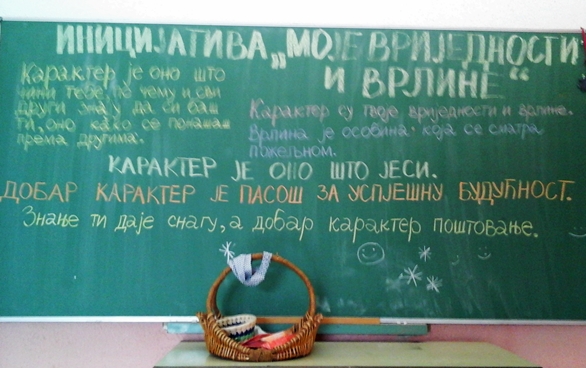 ИНИЦИЈАТИВА „МОЈЕ ВРИЈЕДНОСТИ
И ВРЛИНЕ“
Карактер је оно што
чини тебе, по чему и сви
други знају да си баш
ти, оно како се понашаш
према другима.
Карактер су твоје вриједности и врлине.
Врлина је особина која се сматра
пожељном.
КАРАКТЕР ЈЕ ОНО ШТО ЈЕСИ.
ДОБАР КАРАКТЕР ЈЕ ПАСОШ ЗА УСПЈЕШНУ БУДУЋНОСТ.
Знање ти даје снагу, а добар карактер поштовање.